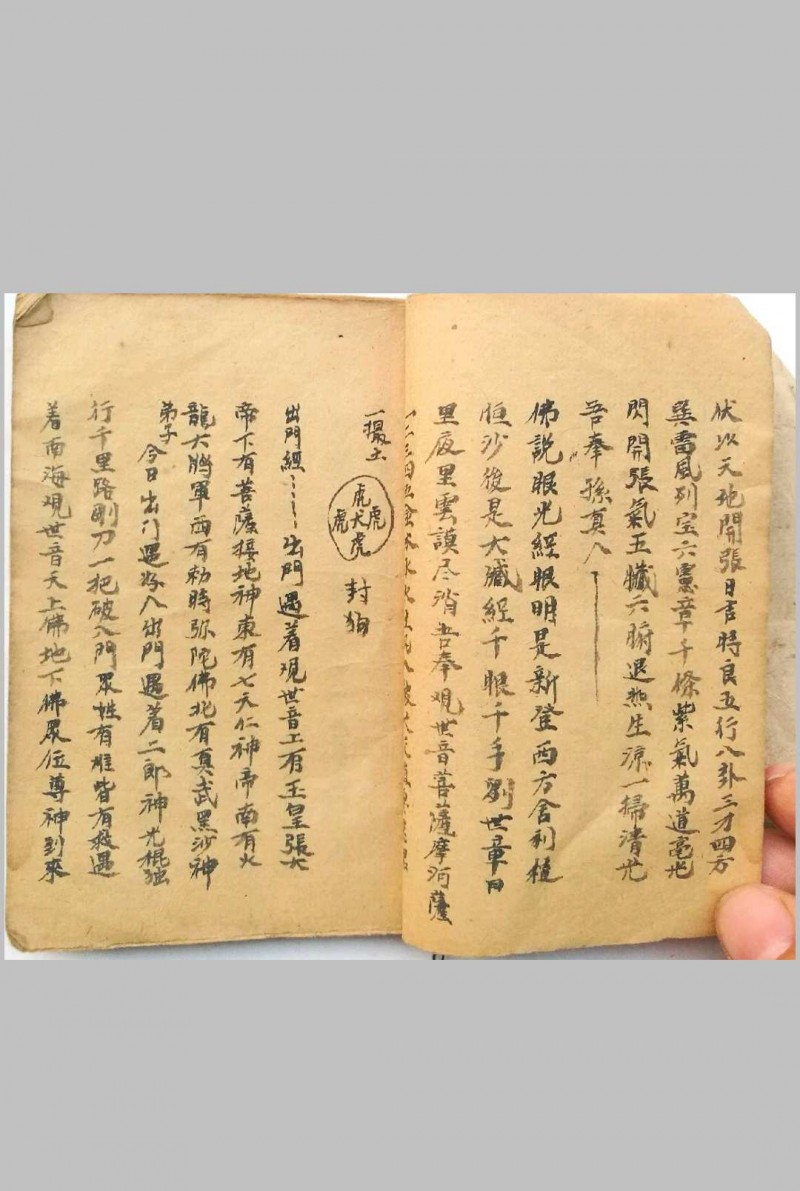 伏以天地開張日吉時良五行八卦三才四方
巽雷風列宝六憲章千條紫氣萬道毫光
閃開張氣五臟六腑退热生凉一掃清光
吾奉孫真人
佛説眼光經眼明是新登西方舍利植
恒沙後是大臟經千眼千手劉世章日
里反里雲謨尽消吾奉观世音菩薩摩诃薩
一二三四
一撮土
虎虎犬虎虎
封狗
出門經
出門遇着观世音上有玉皇張大
帝下有菩薩接地神東有七天仁神帝南有火
龍大將軍西有勅時弥陀佛北有真武黑沙神
弟子今日出门遇好人出門遇着二郎神光棍强
行千里路剛刀一把破入門眾姓有难皆有救遇
着南海观世音天上佛地下佛眾位尊神到來